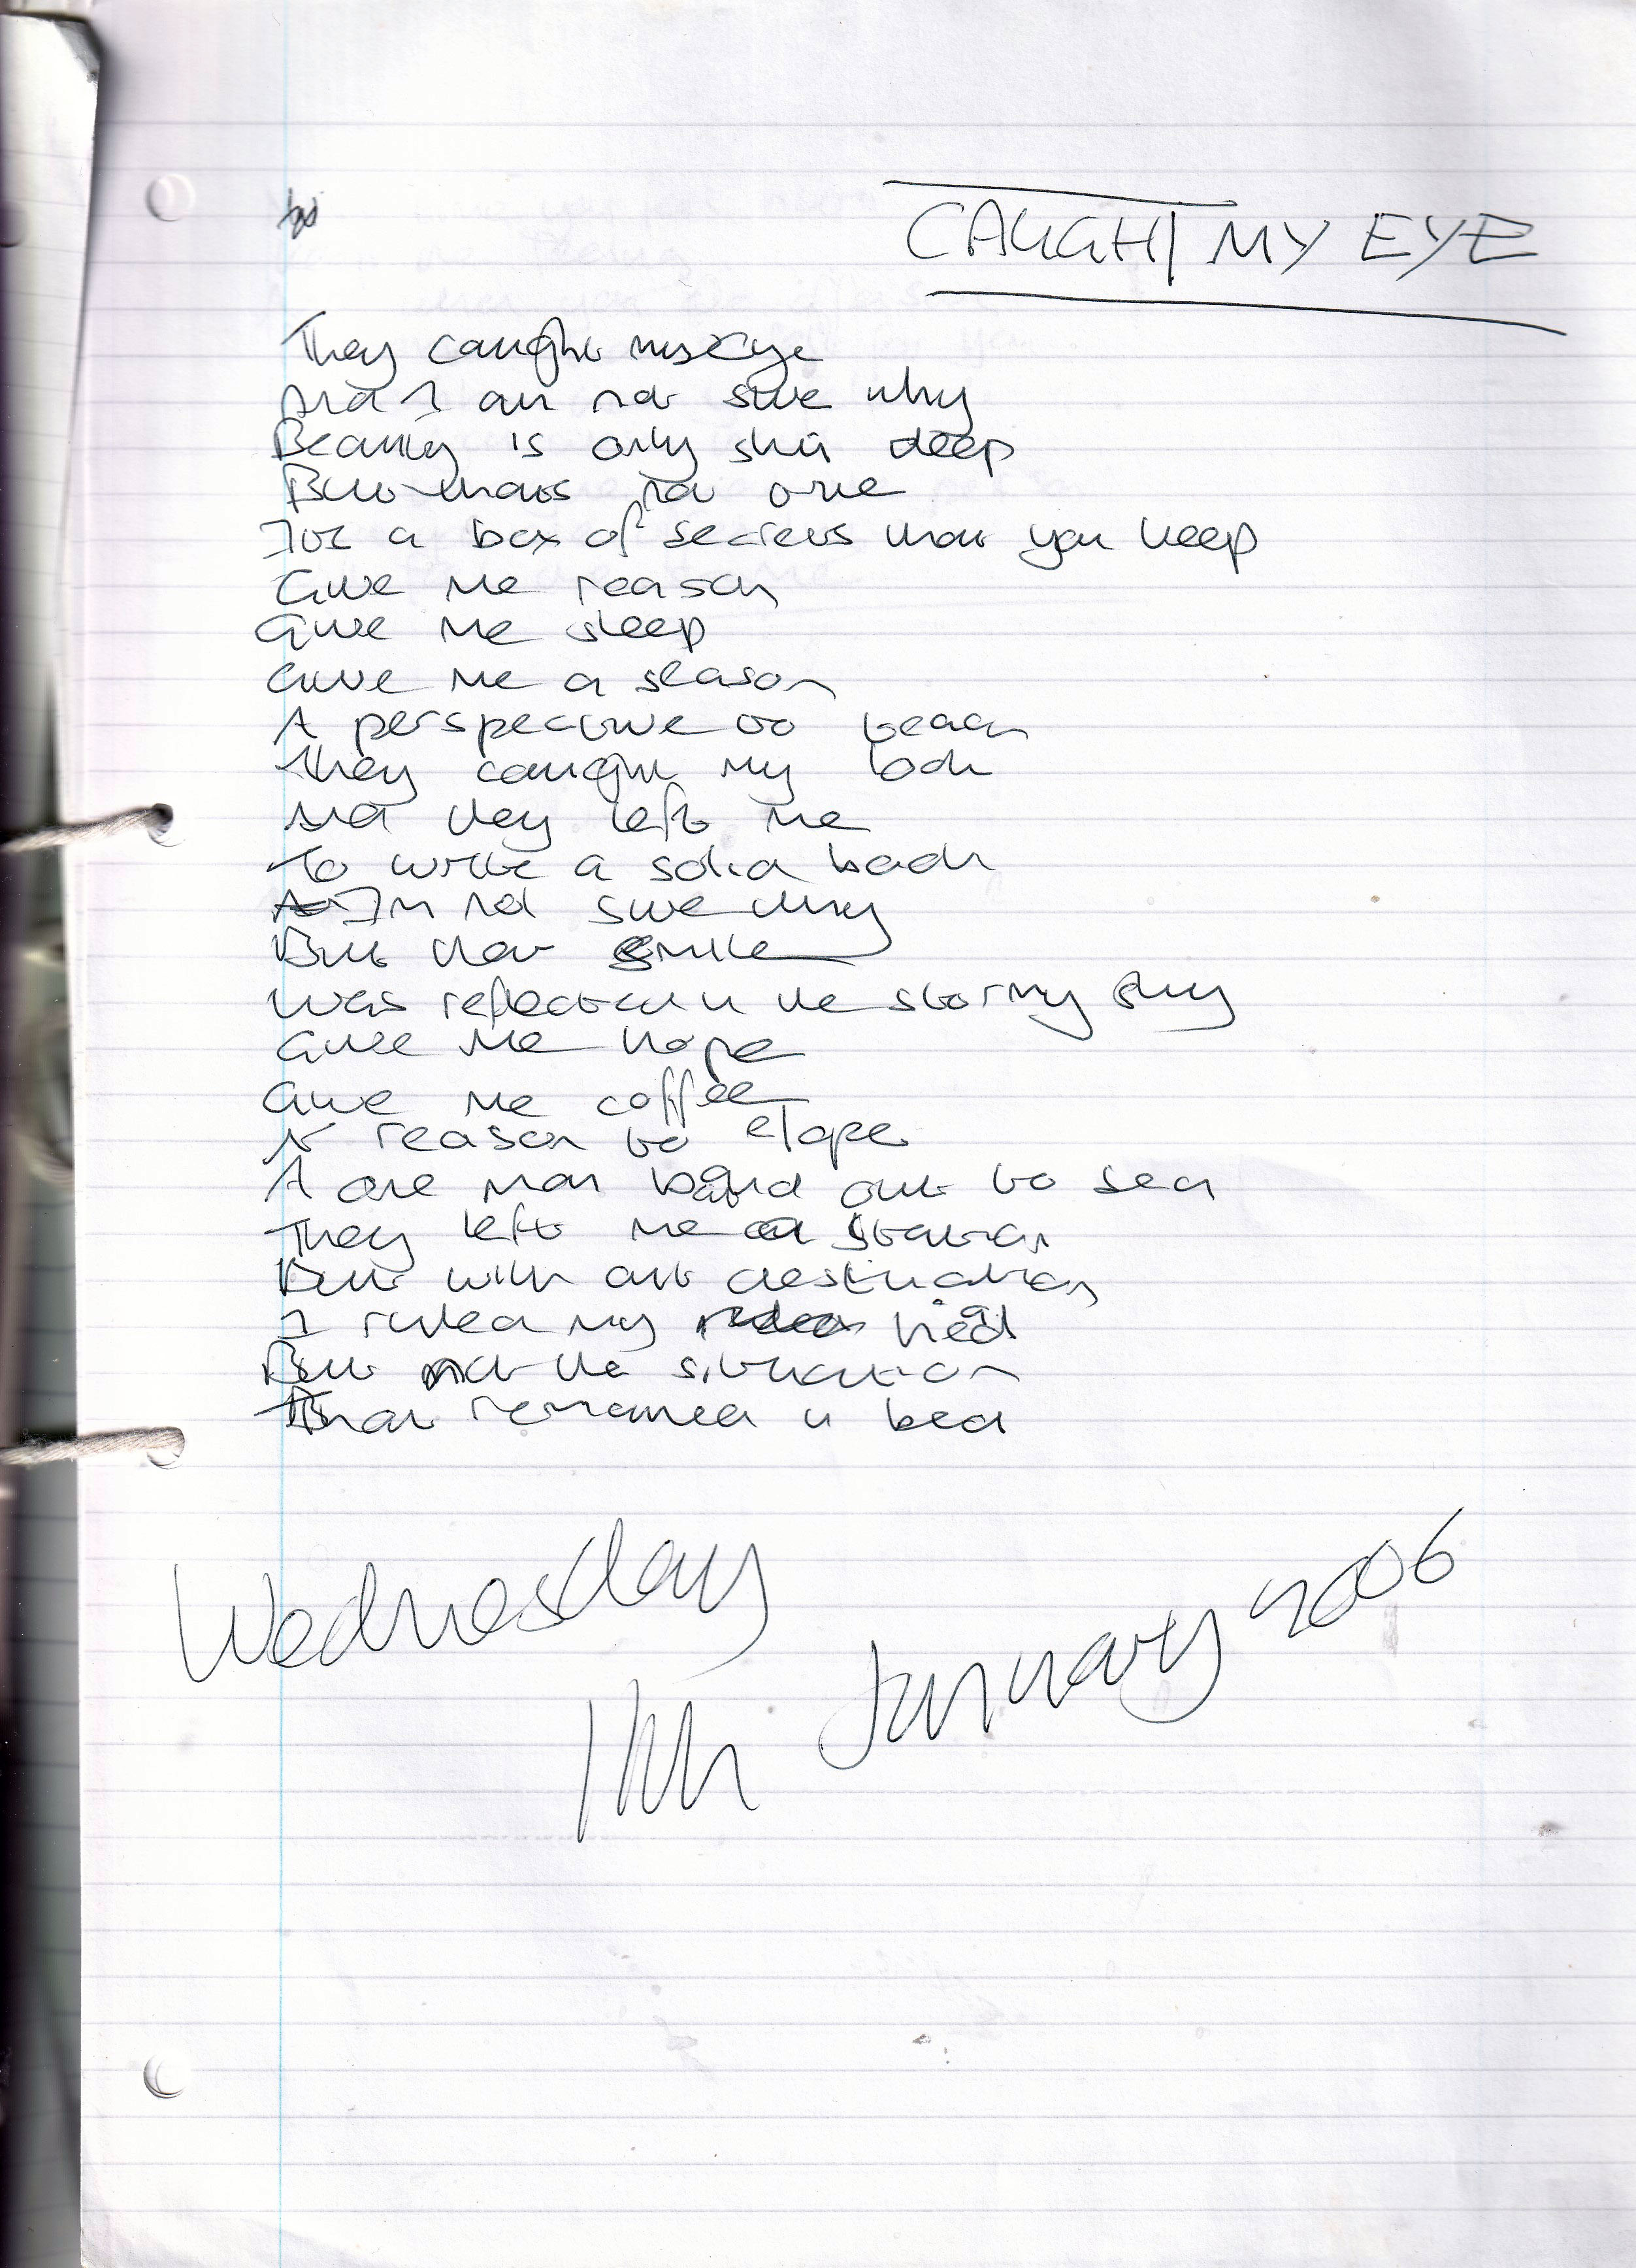 CAUGHT MY EYE
They caught my eye
And I am not sure why
Beauty is only skin deep
But thats not true
For a box of secrets that you keep
Give me reason
Give me sleep
Give me a season
A perspective to teach
They caught my look
And they left me
To write a solid book
Im not sure why
But that smile
Was reflected in the stormy sky
Give me hope
Give me coffee
A reason to elope
A one man band out to sea
They left me a station
But with out destination
I ruled my head
But not the situation
That remained in bed
Wednesday
11th January 2006